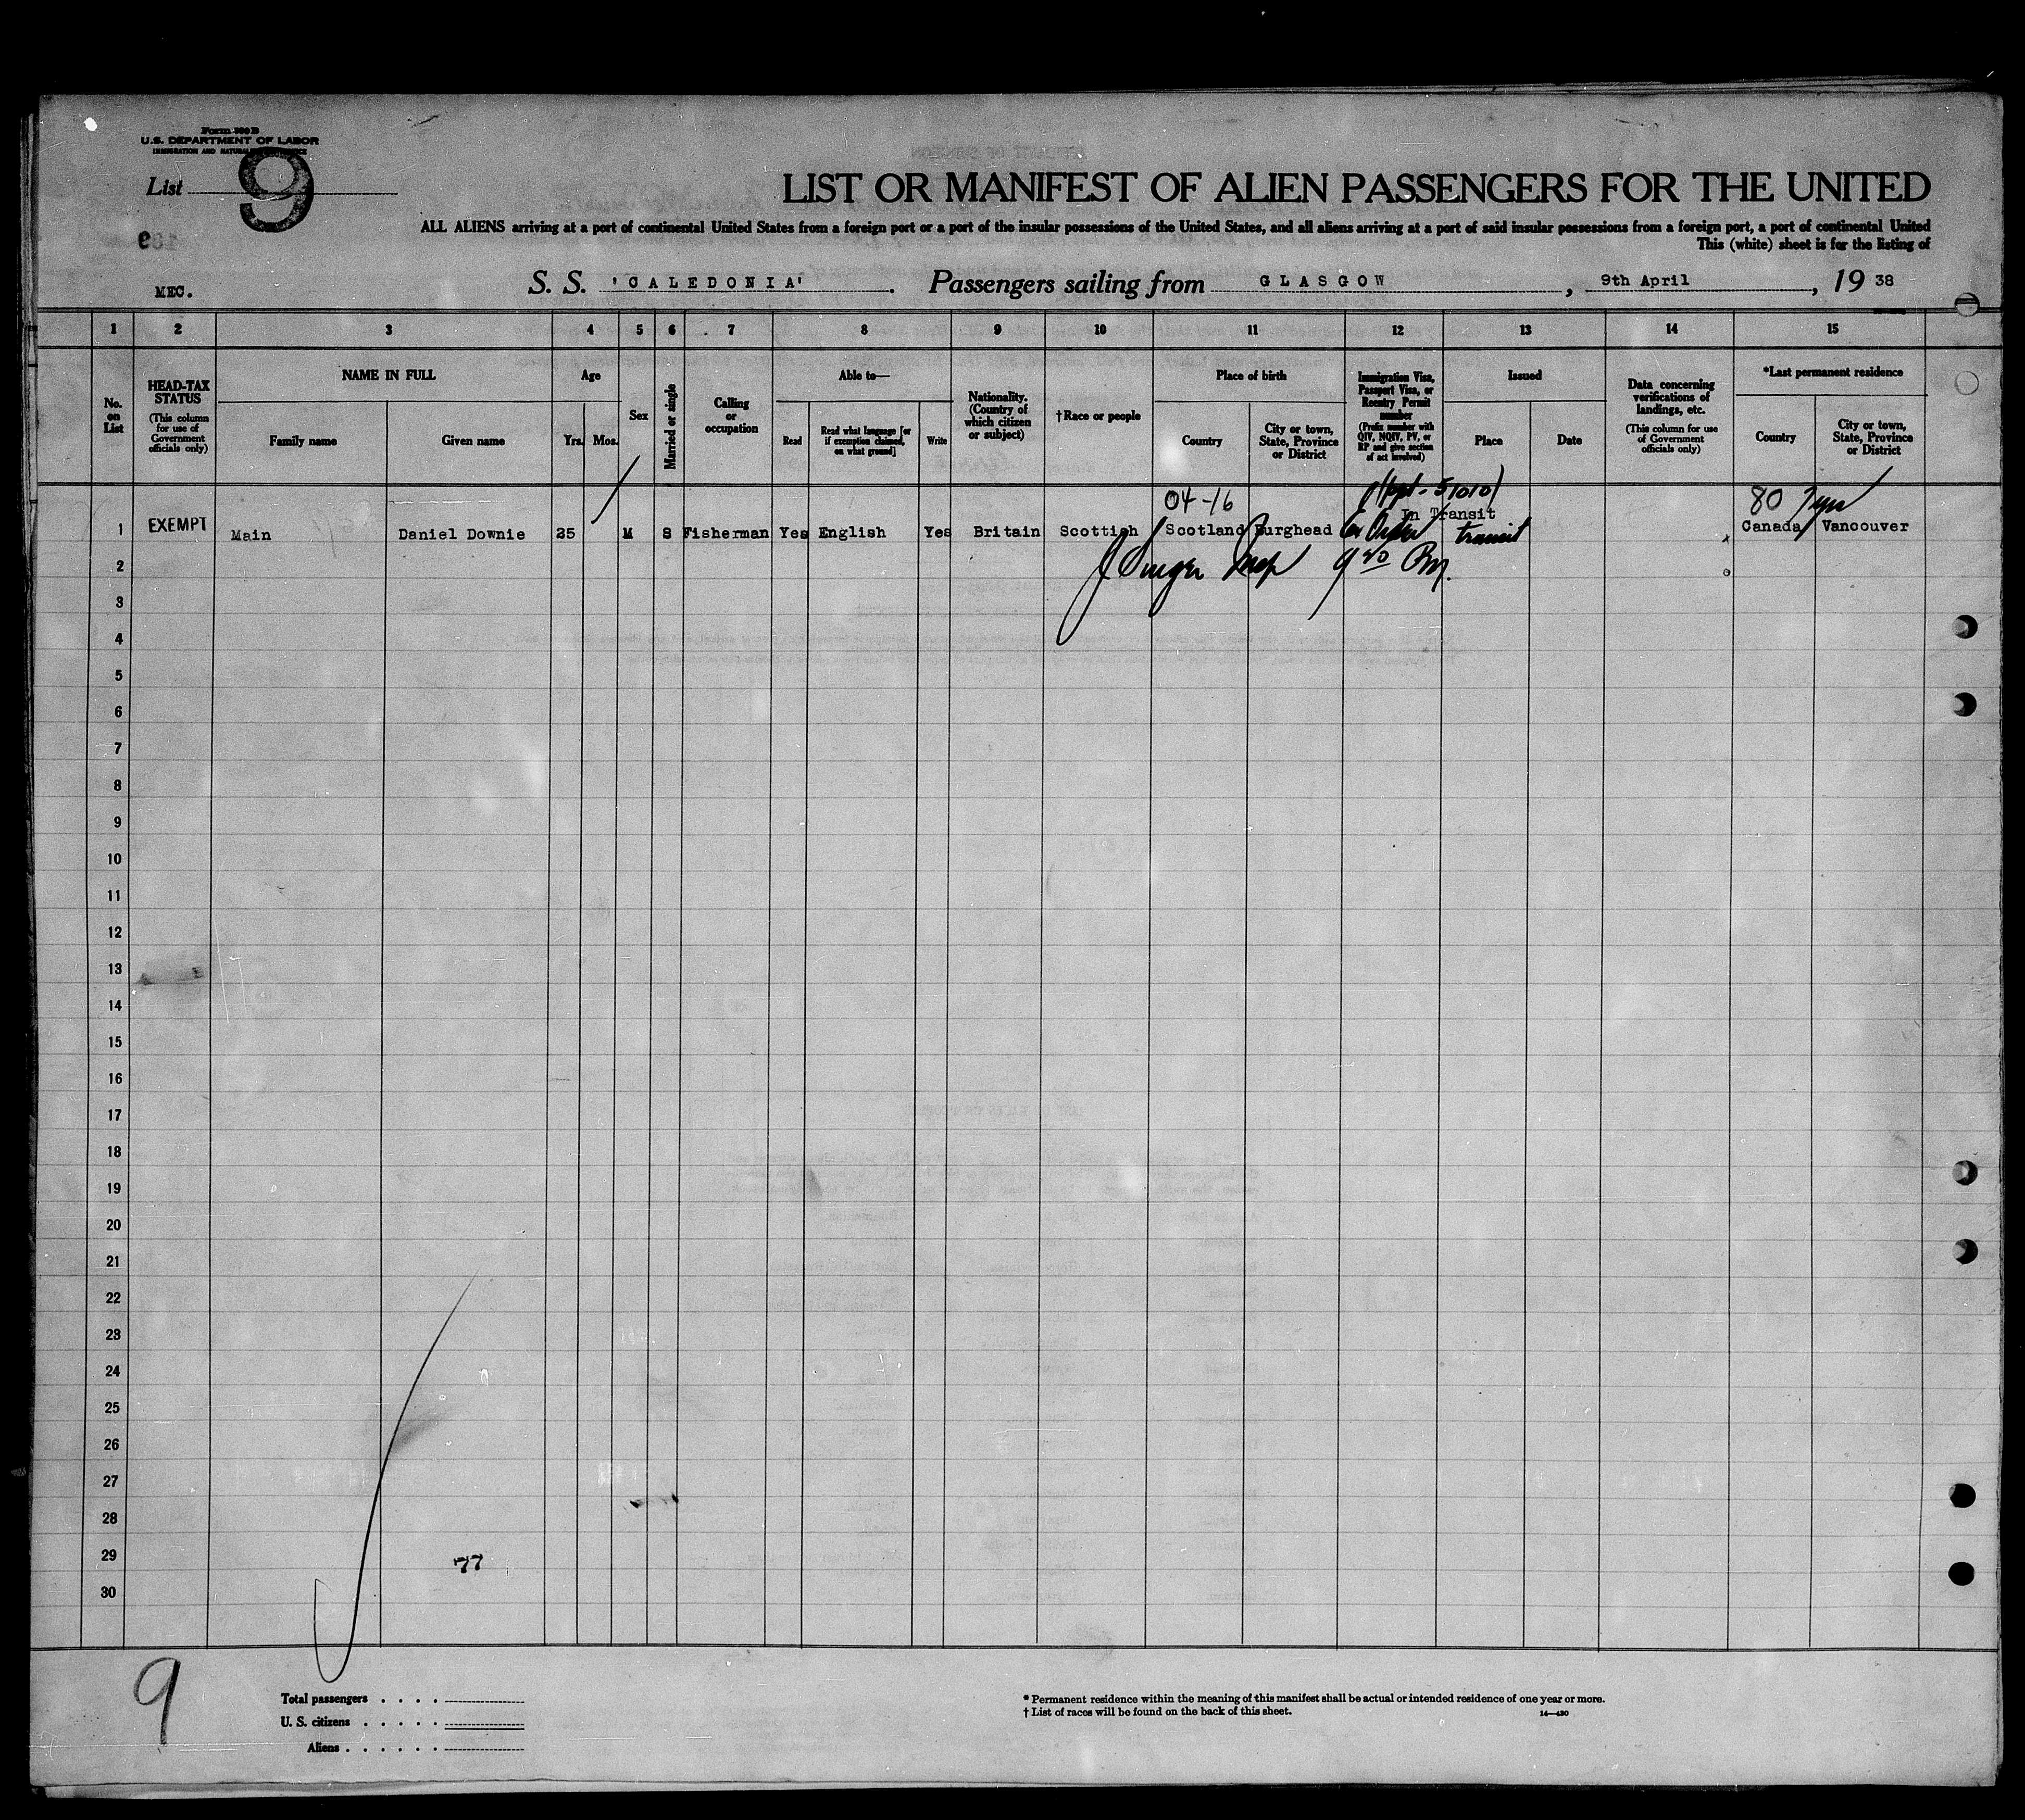 Form 500 B
U.S. DEPARTMENT OF LABOR
IMMIGRATION AND NATURALIZATION SERVICE
List 9
LIST OR MANIFEST OF ALIEN PASSENGERS FOR THE UNITED
ALL ALIENS arriving at a port of continental United States from a foreign port or a port of the insular possessions of the United States, and all aliens arriving at a port of said insular possessions from a foreign port, a port of continental United
This (white) sheet is for the listing of
MEC.
S. S. 'CALEDONIA'. Passengers sailing from GLASGOW, 9th April, 19 38
1 2 3 4 5 6 7 8 9 10 11 12 13 14 15
No. on List
HEAD-TAX STATUS (This column for use of Government officials only)
NAME IN FULL
Family name Given name
Age
Yrs. Mos.
Sex
Married or single
Calling or occupation
Able to—
Read
Read what language [or if exemption claimed, on what ground]
Write
Nationality. (Country of which citizen or subject)
†Race or people
Place of birth
Country
City or town, State, Province or District
Immigration Visa, Passport Visa, or Reentry Permit number (Prefix number with QIV, NQIV, PV, or RP and give section of act involved)
Issued
Place Date
Data concerning verifications of landings, etc. (This column for use of Government officials only)
*Last permanent residence
Country
City or town, State, Province or District
04-16
80
In Transit
1 EXEMPT Main Daniel Downie 25 M S Fisherman Yes English Yes Britain Scottish Scotland Burghead transit Canada Vancouver
2
3
4
5
6
7
8
9
10
11
12
13
14
15
16
17
18
19
20
21
22
23
24
25
26
27
28
29
77
30
9
Total passengers
U. S. citizens
Aliens
* Permanent residence within the meaning of this manifest shall be actual or intended residence of one year or more.
† List of races will be found on the back of this sheet.
14—430